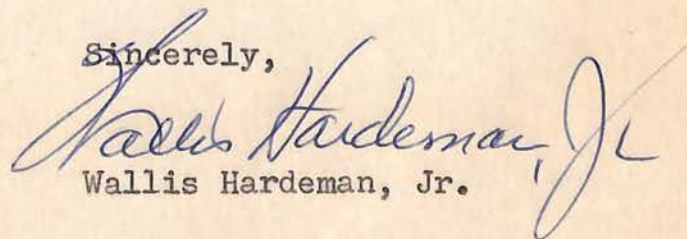 Sincerely,
Wallis Hardeman, Jr
Wallis Hardeman, Jr.